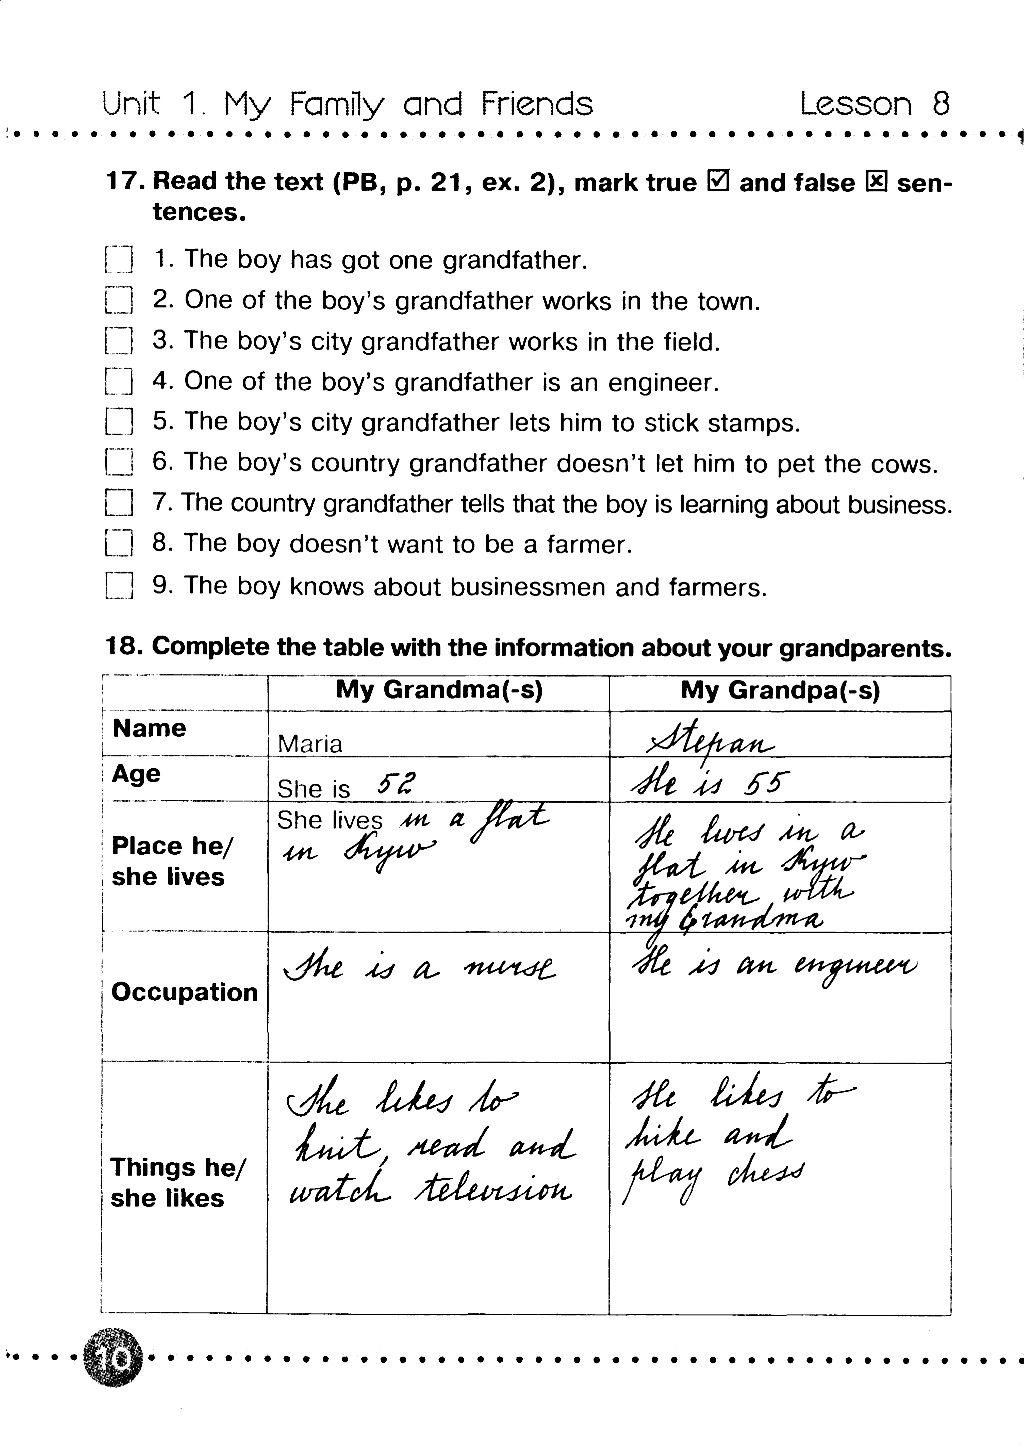 Unit 1. My Family and Friends Lesson 8
17. Read the text (PB, p. 21, ex. 2), mark true ☑ and false ☒ sen-
tences.
1. The boy has got one grandfather.
2. One of the boy's grandfather works in the town.
3. The boy's city grandfather works in the field.
4. One of the boy's grandfather is an engineer.
5. The boy's city grandfather lets him to stick stamps.
6. The boy's country grandfather doesn't let him to pet the cows.
7. The country grandfather tells that the boy is learning about business.
8. The boy doesn't want to be a farmer.
9. The boy knows about businessmen and farmers.
18. Complete the table with the information about your grandparents.
My Grandma(-s) My Grandpa(-s)
Name
Maria
Stepan
Age
She is 52
He is 55
Place he/
she lives
She lives in a flat
in Kyiv
He lives in a
flat in Kyiv
together with
my Grandma
Occupation
She is a nurse
He is an engineer
Things he/
she likes
She likes to
knit, read and
watch television
He likes to
hike and
play chess
10